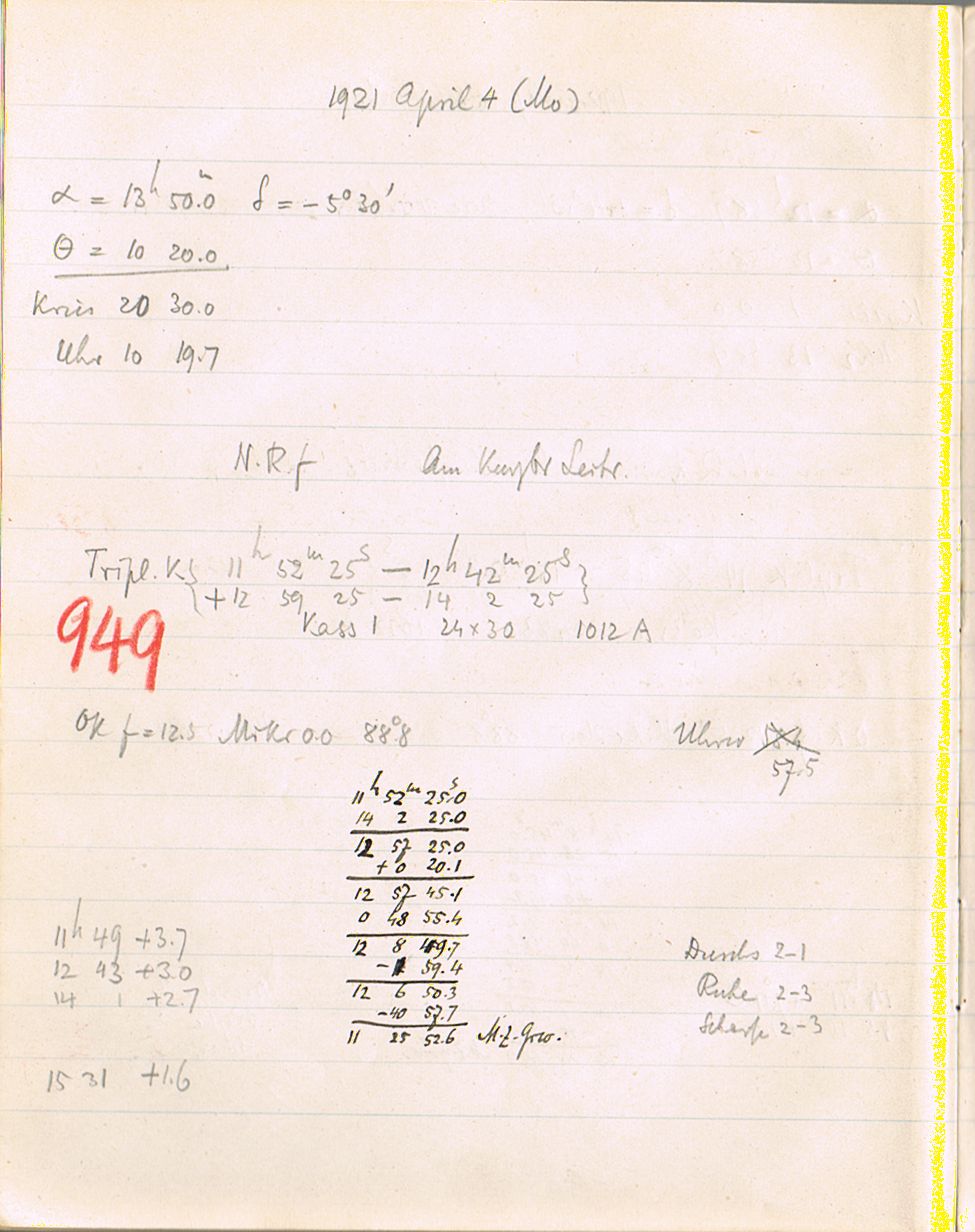 1921 April 4 (Mo)
α = 13ʰ 50.0ᵐ δ = -5° 30'
Θ = 10 20.0
Kreis 20 30.0
Uhr 10 19.7
N.R.f Am
Tripl. K { 11ʰ 52ᵐ 25ˢ — 12ʰ 42ᵐ 25ˢ }
+12 59 25 — 14 2 25
Kass 1 24×30 1012 A
949
OK f = 12.5 Mikr 0.0 88°8 Uhrw
57.5
11ʰ 52ᵐ 25.0ˢ
14 2 25.0
12 57 25.0
+0 20.1
12 57 45.1
0 48 55.4
12 8 49.7
-1 59.4
12 6 50.3
-40 57.7
11 25 52.6 M.Z.Grw.
11ʰ 49 +3.7
12 43 +3.0
14 1 +2.7
15 31 +1.6
Durchs 2-1
Ruhe 2-3
Schärfe 2-3